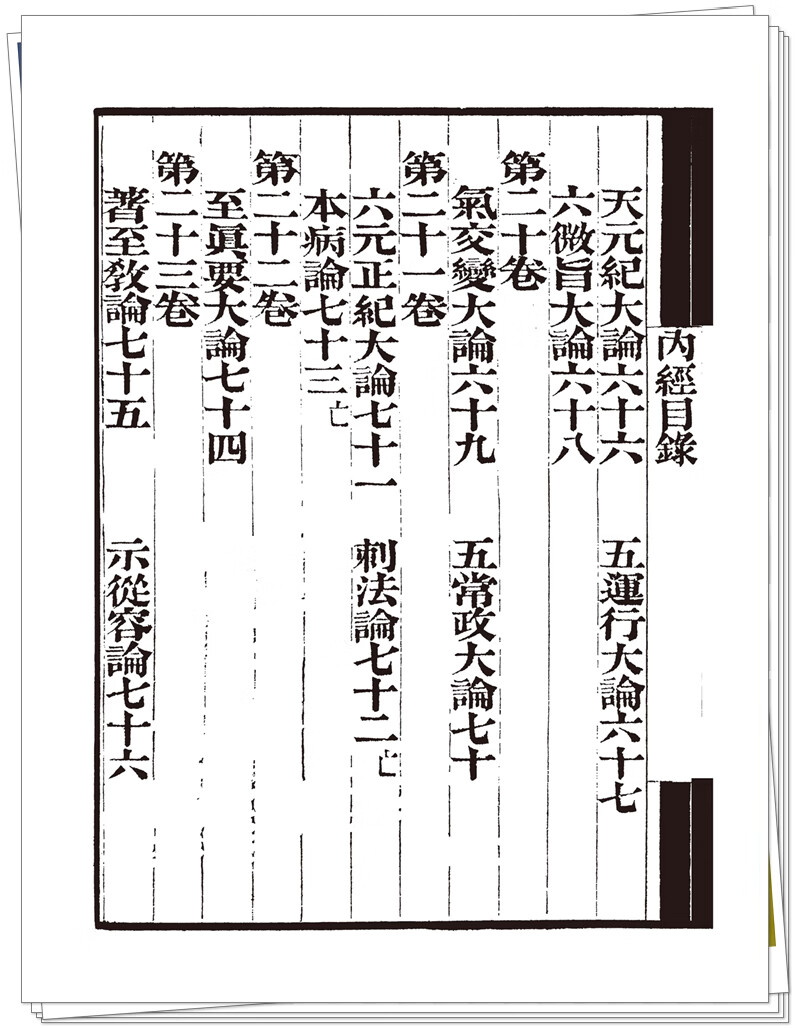 內經目錄
天元紀大論六十六　五運行大論六十七
六微旨大論六十八
第二十卷
氣交變大論六十九　五常政大論七十
第二十一卷
六元正紀大論七十一　刺法論七十二亡
本病論七十三亡
第二十二卷
至眞要大論七十四
第二十三卷
著至敎論七十五　示從容論七十六